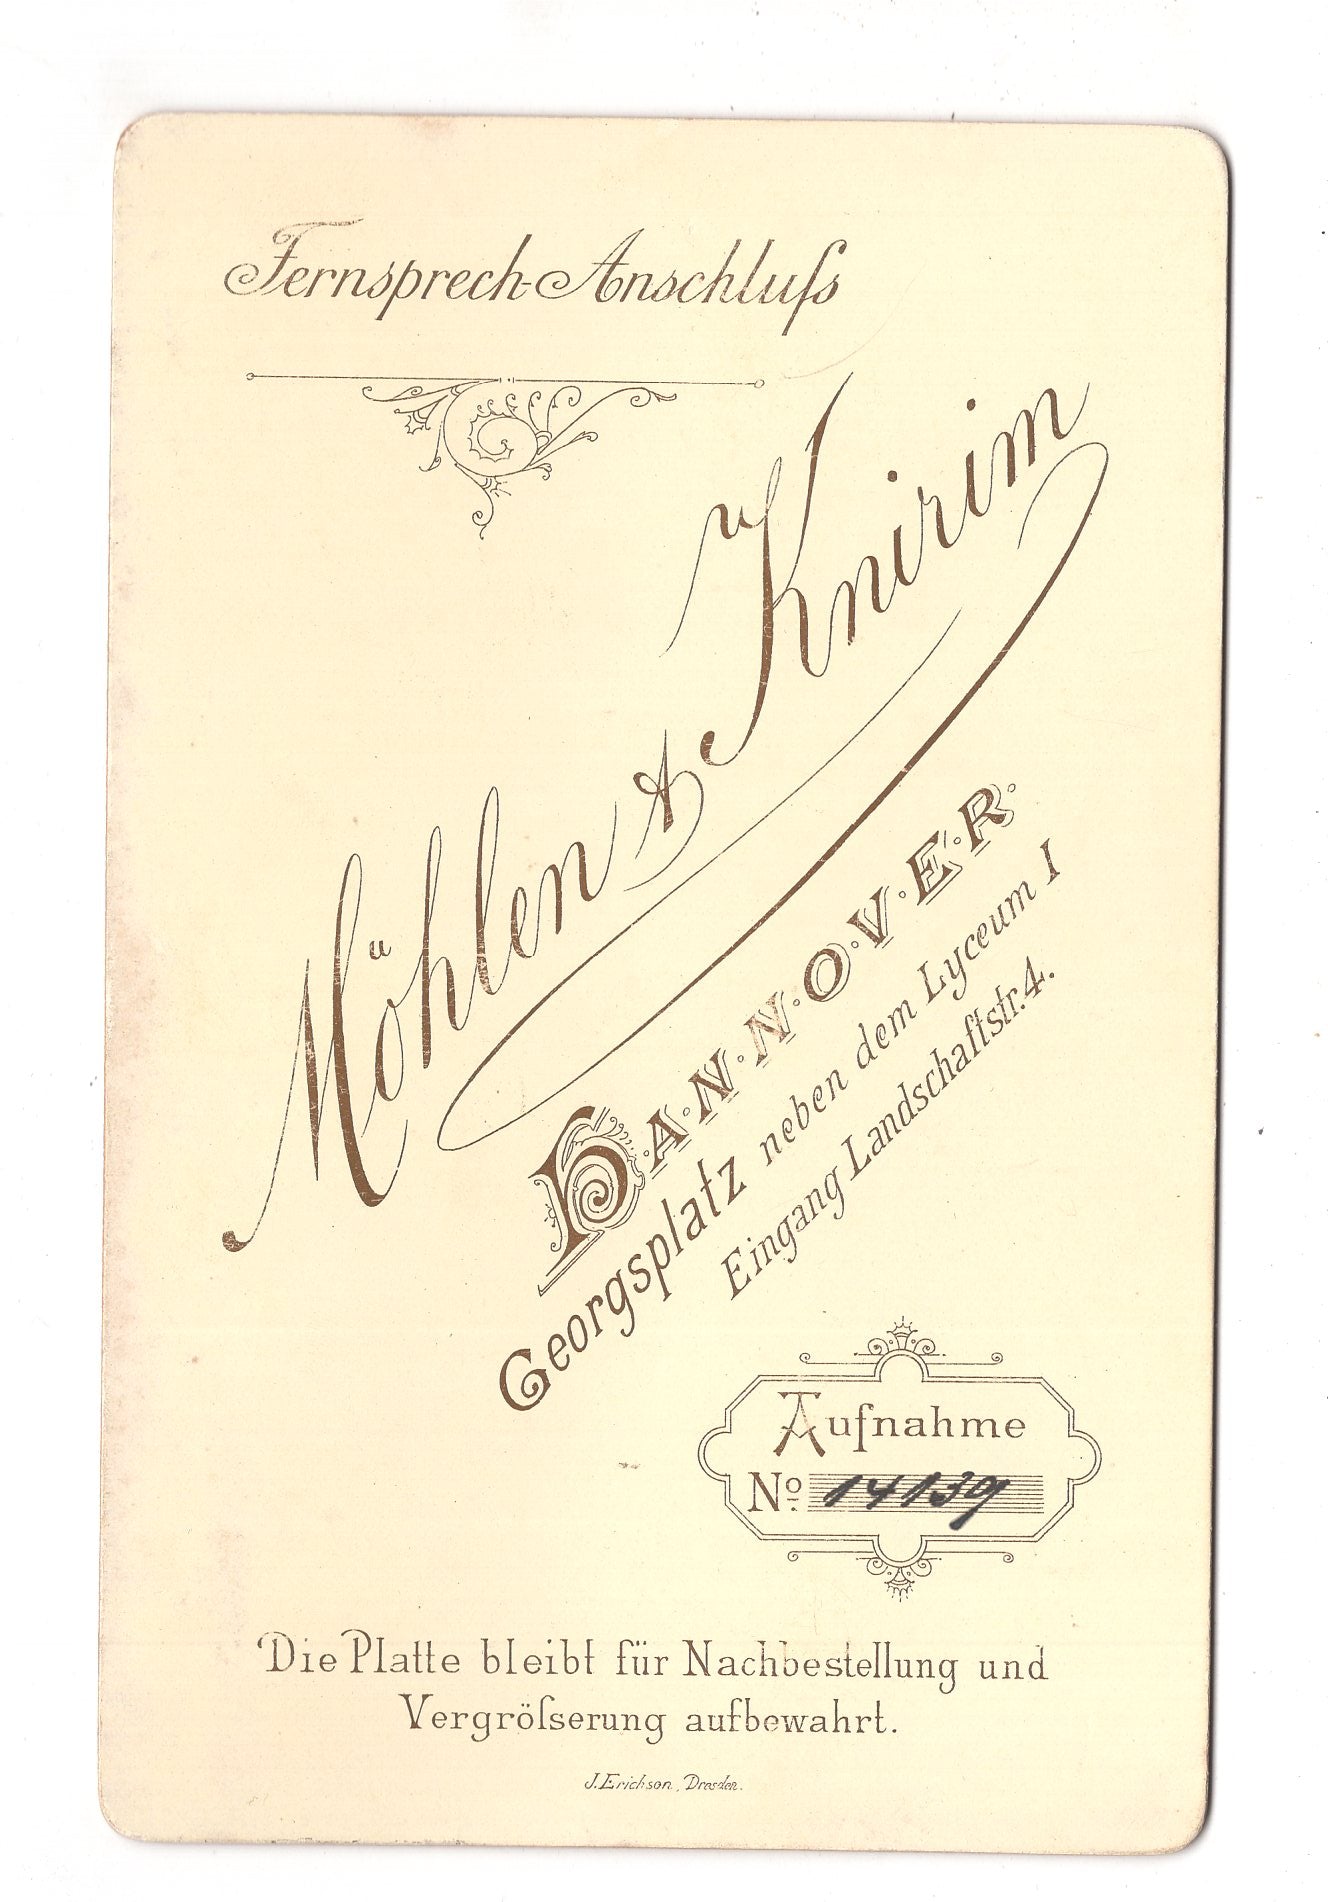 Fernsprech-Anschluſs
Möhlen & Knirim
HANNOVER
Georgsplatz neben dem Lyceum I
Eingang Landschaftstr. 4.
Aufnahme
No. 14139
Die Platte bleibt für Nachbestellung und
Vergröſserung aufbewahrt.
J. Erickson, Dresden.